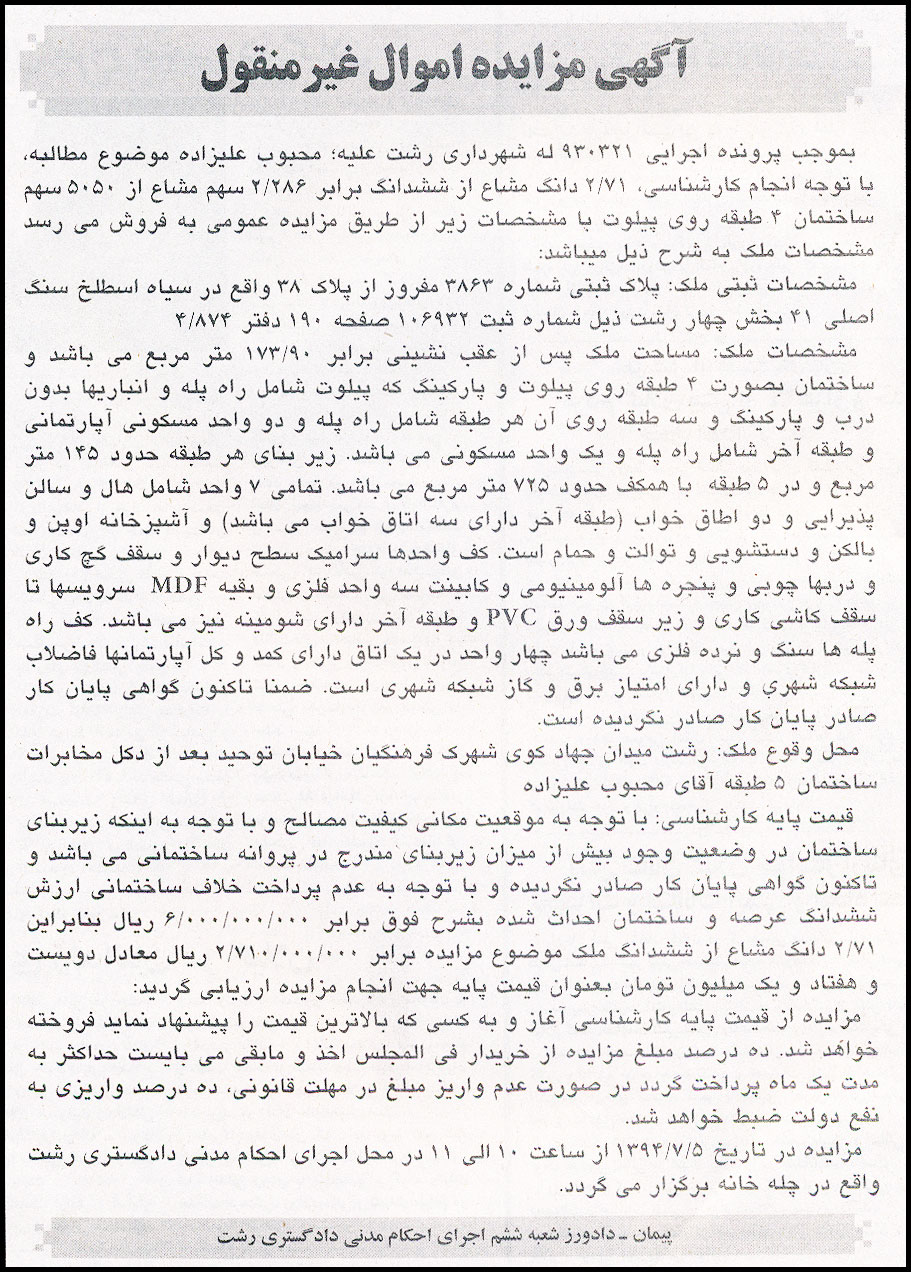 آگهی مزایده اموال غیر منقول
بموجب پرونده اجرایی ۹۳۰۳۲۱ له شهرداری رشت علیه؛ محبوب علیزاده موضوع مطالبه،
با توجه انجام کارشناسی، ۲/۷۱ دانگ مشاع از ششدانگ برابر ۲/۲۸۶ سهم مشاع از ۵۰۵۰ سهم
ساختمان ۴ طبقه روی پیلوت با مشخصات زیر از طریق مزایده عمومی به فروش می رسد
مشخصات ملک به شرح ذیل میباشد:
مشخصات ثبتی ملک: پلاک ثبتی شماره ۳۸۶۳ مفروز از پلاک ۳۸ واقع در سیاه اسطلخ سنگ
اصلی ۴۱ بخش چهار رشت ذیل شماره ثبت ۱۰۶۹۳۲ صفحه ۱۹۰ دفتر ۴/۸۷۴
مشخصات ملک: مساحت ملک پس از عقب نشینی برابر ۱۷۳/۹۰ متر مربع می باشد و
ساختمان بصورت ۴ طبقه روی پیلوت و پارکینگ که پیلوت شامل راه پله و انباریها بدون
درب و پارکینگ و سه طبقه روی آن هر طبقه شامل راه پله و دو واحد مسکونی آپارتمانی
و طبقه آخر شامل راه پله و یک واحد مسکونی می باشد. زیر بنای هر طبقه حدود ۱۴۵ متر
مربع و در ۵ طبقه با همکف حدود ۷۲۵ متر مربع می باشد. تمامی ۷ واحد شامل هال و سالن
پذیرایی و دو اطاق خواب (طبقه آخر دارای سه اتاق خواب می باشد) و آشپزخانه اوپن و
بالکن و دستشویی و توالت و حمام است. کف واحدها سرامیک سطح دیوار و سقف گچ کاری
و دربها چوبی و پنجره ها آلومینیومی و کابینت سه واحد فلزی و بقیه MDF سرویسها تا
سقف کاشی کاری و زیر سقف ورق PVC و طبقه آخر دارای شومینه نیز می باشد. کف راه
پله ها سنگ و نرده فلزی می باشد چهار واحد در یک اتاق دارای کمد و کل آپارتمانها فاضلاب
شبکه شهری و دارای امتیاز برق و گاز شبکه شهری است. ضمنا تاکنون گواهی پایان کار
صادر پایان کار صادر نگردیده است.
محل وقوع ملک: رشت میدان جهاد کوی شهرک فرهنگیان خیابان توحید بعد از دکل مخابرات
ساختمان ۵ طبقه آقای محبوب علیزاده
قیمت پایه کارشناسی: با توجه به موقعیت مکانی کیفیت مصالح و با توجه به اینکه زیربنای
ساختمان در وضعیت وجود بیش از میزان زیربنای مندرج در پروانه ساختمانی می باشد و
تاکنون گواهی پایان کار صادر نگردیده و با توجه به عدم پرداخت خلاف ساختمانی ارزش
ششدانگ عرصه و ساختمان احداث شده بشرح فوق برابر ۶/۰۰۰/۰۰۰/۰۰۰ ریال بنابراین
۲/۷۱ دانگ مشاع از ششدانگ ملک موضوع مزایده برابر ۲/۷۱۰/۰۰۰/۰۰۰ ریال معادل دویست
و هفتاد و یک میلیون تومان بعنوان قیمت پایه جهت انجام مزایده ارزیابی گردید:
مزایده از قیمت پایه کارشناسی آغاز و به کسی که بالاترین قیمت را پیشنهاد نماید فروخته
خواهد شد. ده درصد مبلغ مزایده از خریدار فی المجلس اخذ و مابقی می بایست حداکثر به
مدت یک ماه پرداخت گردد در صورت عدم واریز مبلغ در مهلت قانونی، ده درصد واریزی به
نفع دولت ضبط خواهد شد.
مزایده در تاریخ ۱۳۹۴/۷/۵ از ساعت ۱۰ الی ۱۱ در محل اجرای احکام مدنی دادگستری رشت
واقع در چله خانه برگزار می گردد.
پیمان - دادورز شعبه ششم اجرای احکام مدنی دادگستری رشت